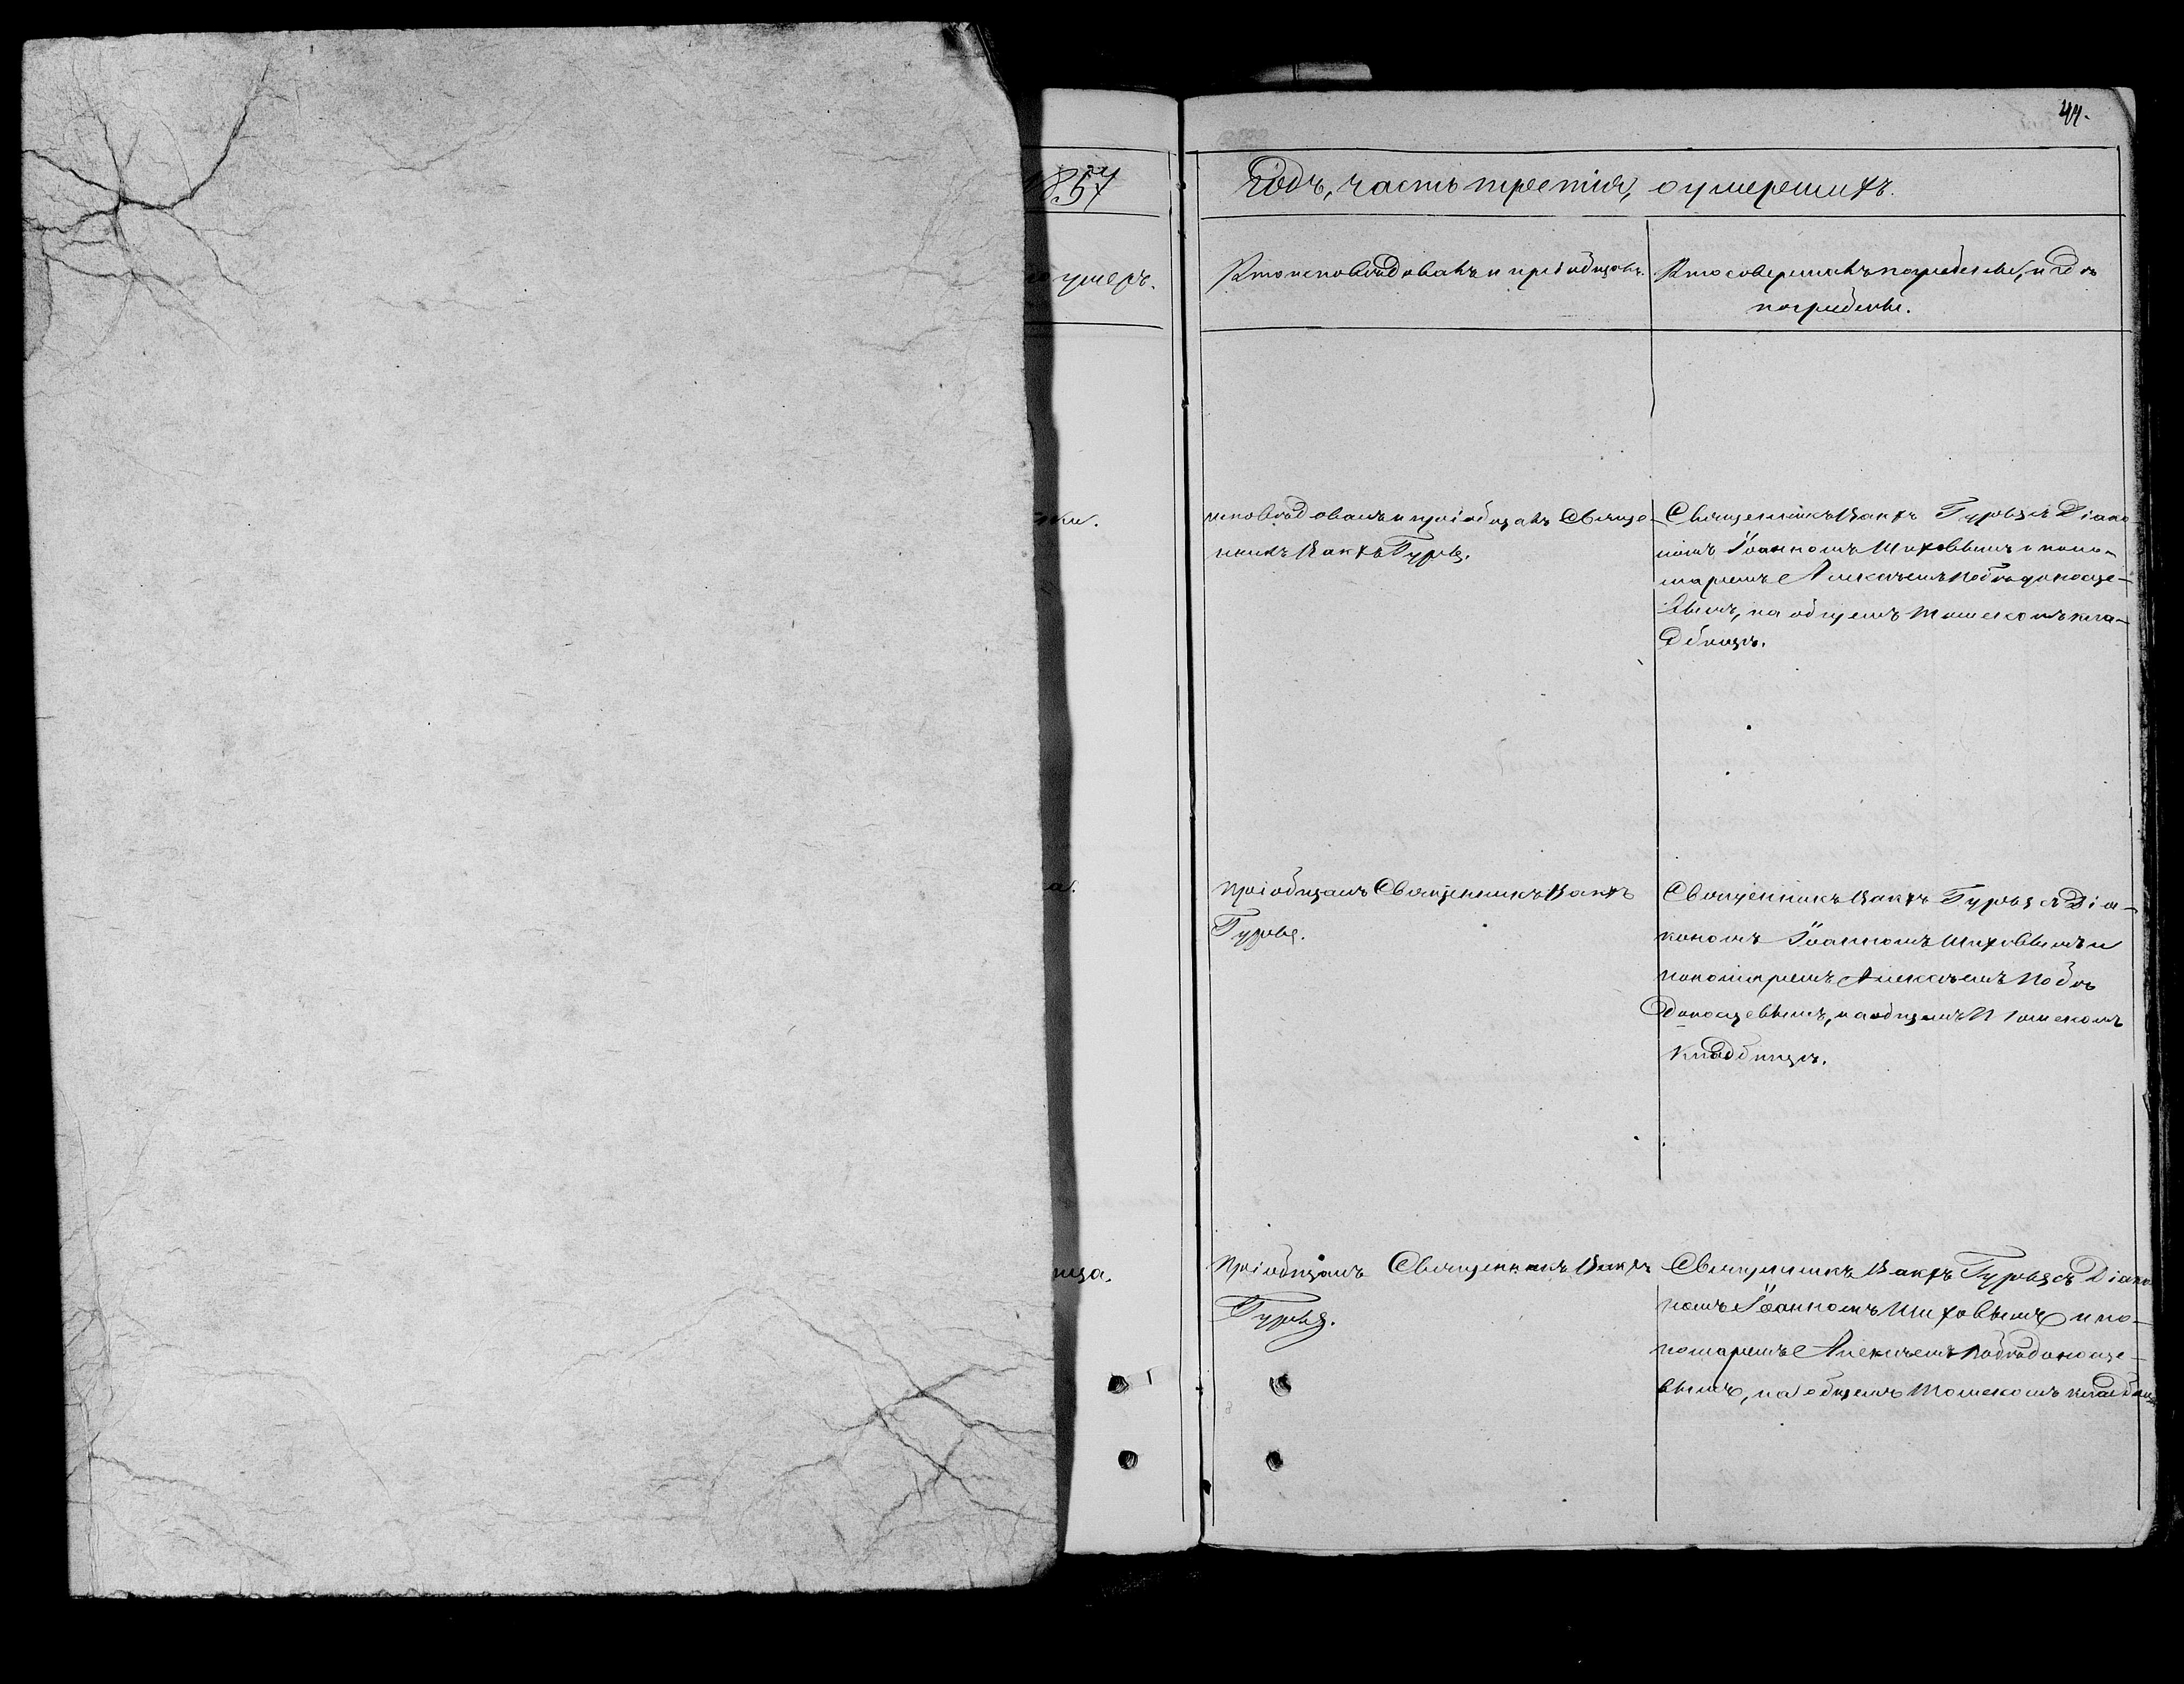 44.
1857
Годъ, часть третія, о умершихъ.
умеръ.
Кто исповѣдовалъ и пріобщалъ.
Кто совершалъ погребеніе, и гдѣ
погребены.
исповѣдовалъ и пріобщалъ Священ-
никъ Вакхъ Гурьевъ.
Священникъ Вакхъ Гурьевъ съ Діако
номъ Іоанномъ Шиховымъ и поно-
маремъ Алексѣемъ Побѣдоносце-
вымъ, на общемъ Томскомъ кла-
дбищѣ.
а.
пріобщалъ Священникъ Вакхъ
Гурьевъ.
Священникъ Вакхъ Гурьевъ съ Діа-
кономъ Іоанномъ Шиховымъ и
пономаремъ Алексѣемъ Побѣ
доносцевымъ, на общемъ Томскомъ
кладбищѣ.
Пріобщалъ Священникъ Вакхъ
Гурьевъ.
Священникъ Вакхъ Гурьевъ съ Діако
номъ Іоанномъ Шиховымъ и по-
номаремъ Алексѣемъ Побѣдоносце-
вымъ, на общемъ Томскомъ кладбищѣ